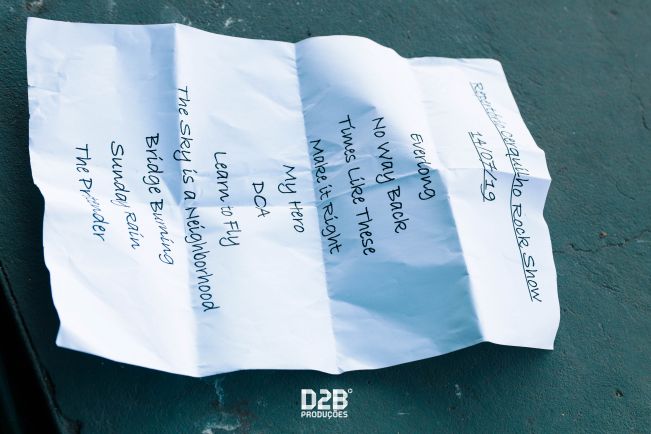 Repertório Cerquilho Rock Show
14/07/19
Everlong
No Way Back
Times Like These
Make it Right
My Hero
DCA
Learn to Fly
The Sky is a Neighborhood
Bridge Burning
Sunday Rain
The Pretender
D2B
PRODUÇÕES